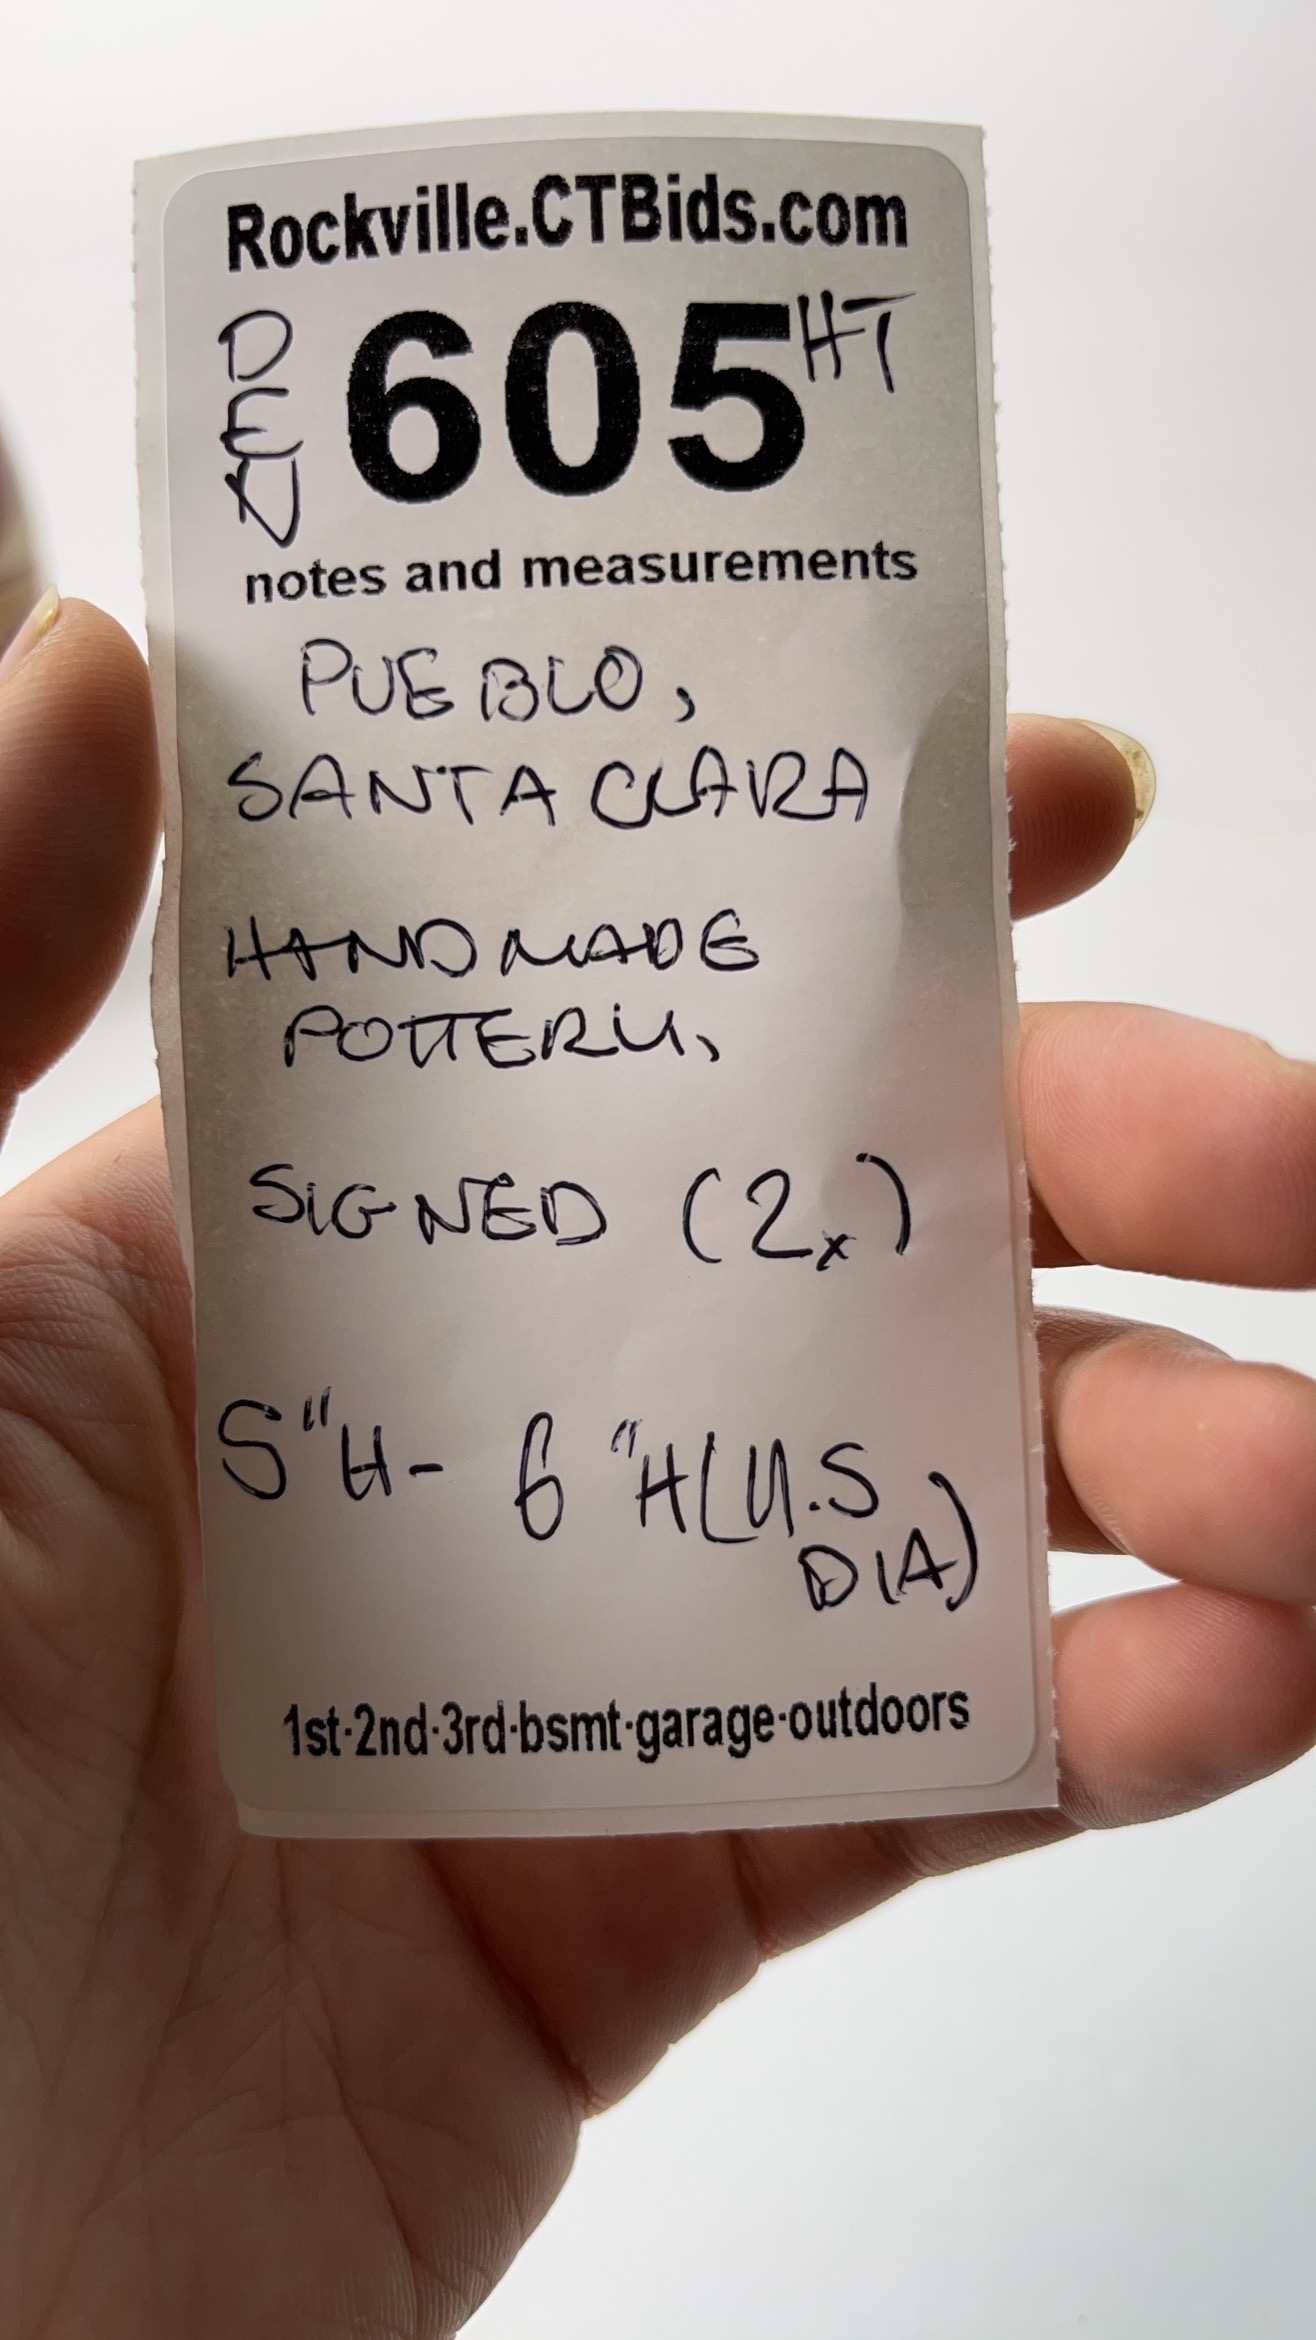 Rockville.CTBids.com
DEN 605 HT
notes and measurements
PUEBLO,
SANTA CLARA
HANDMADE
POTTERY,
SIGNED (2x)
5"H- 6"H(4.5
DIA)
1st·2nd·3rd·bsmt·garage·outdoors